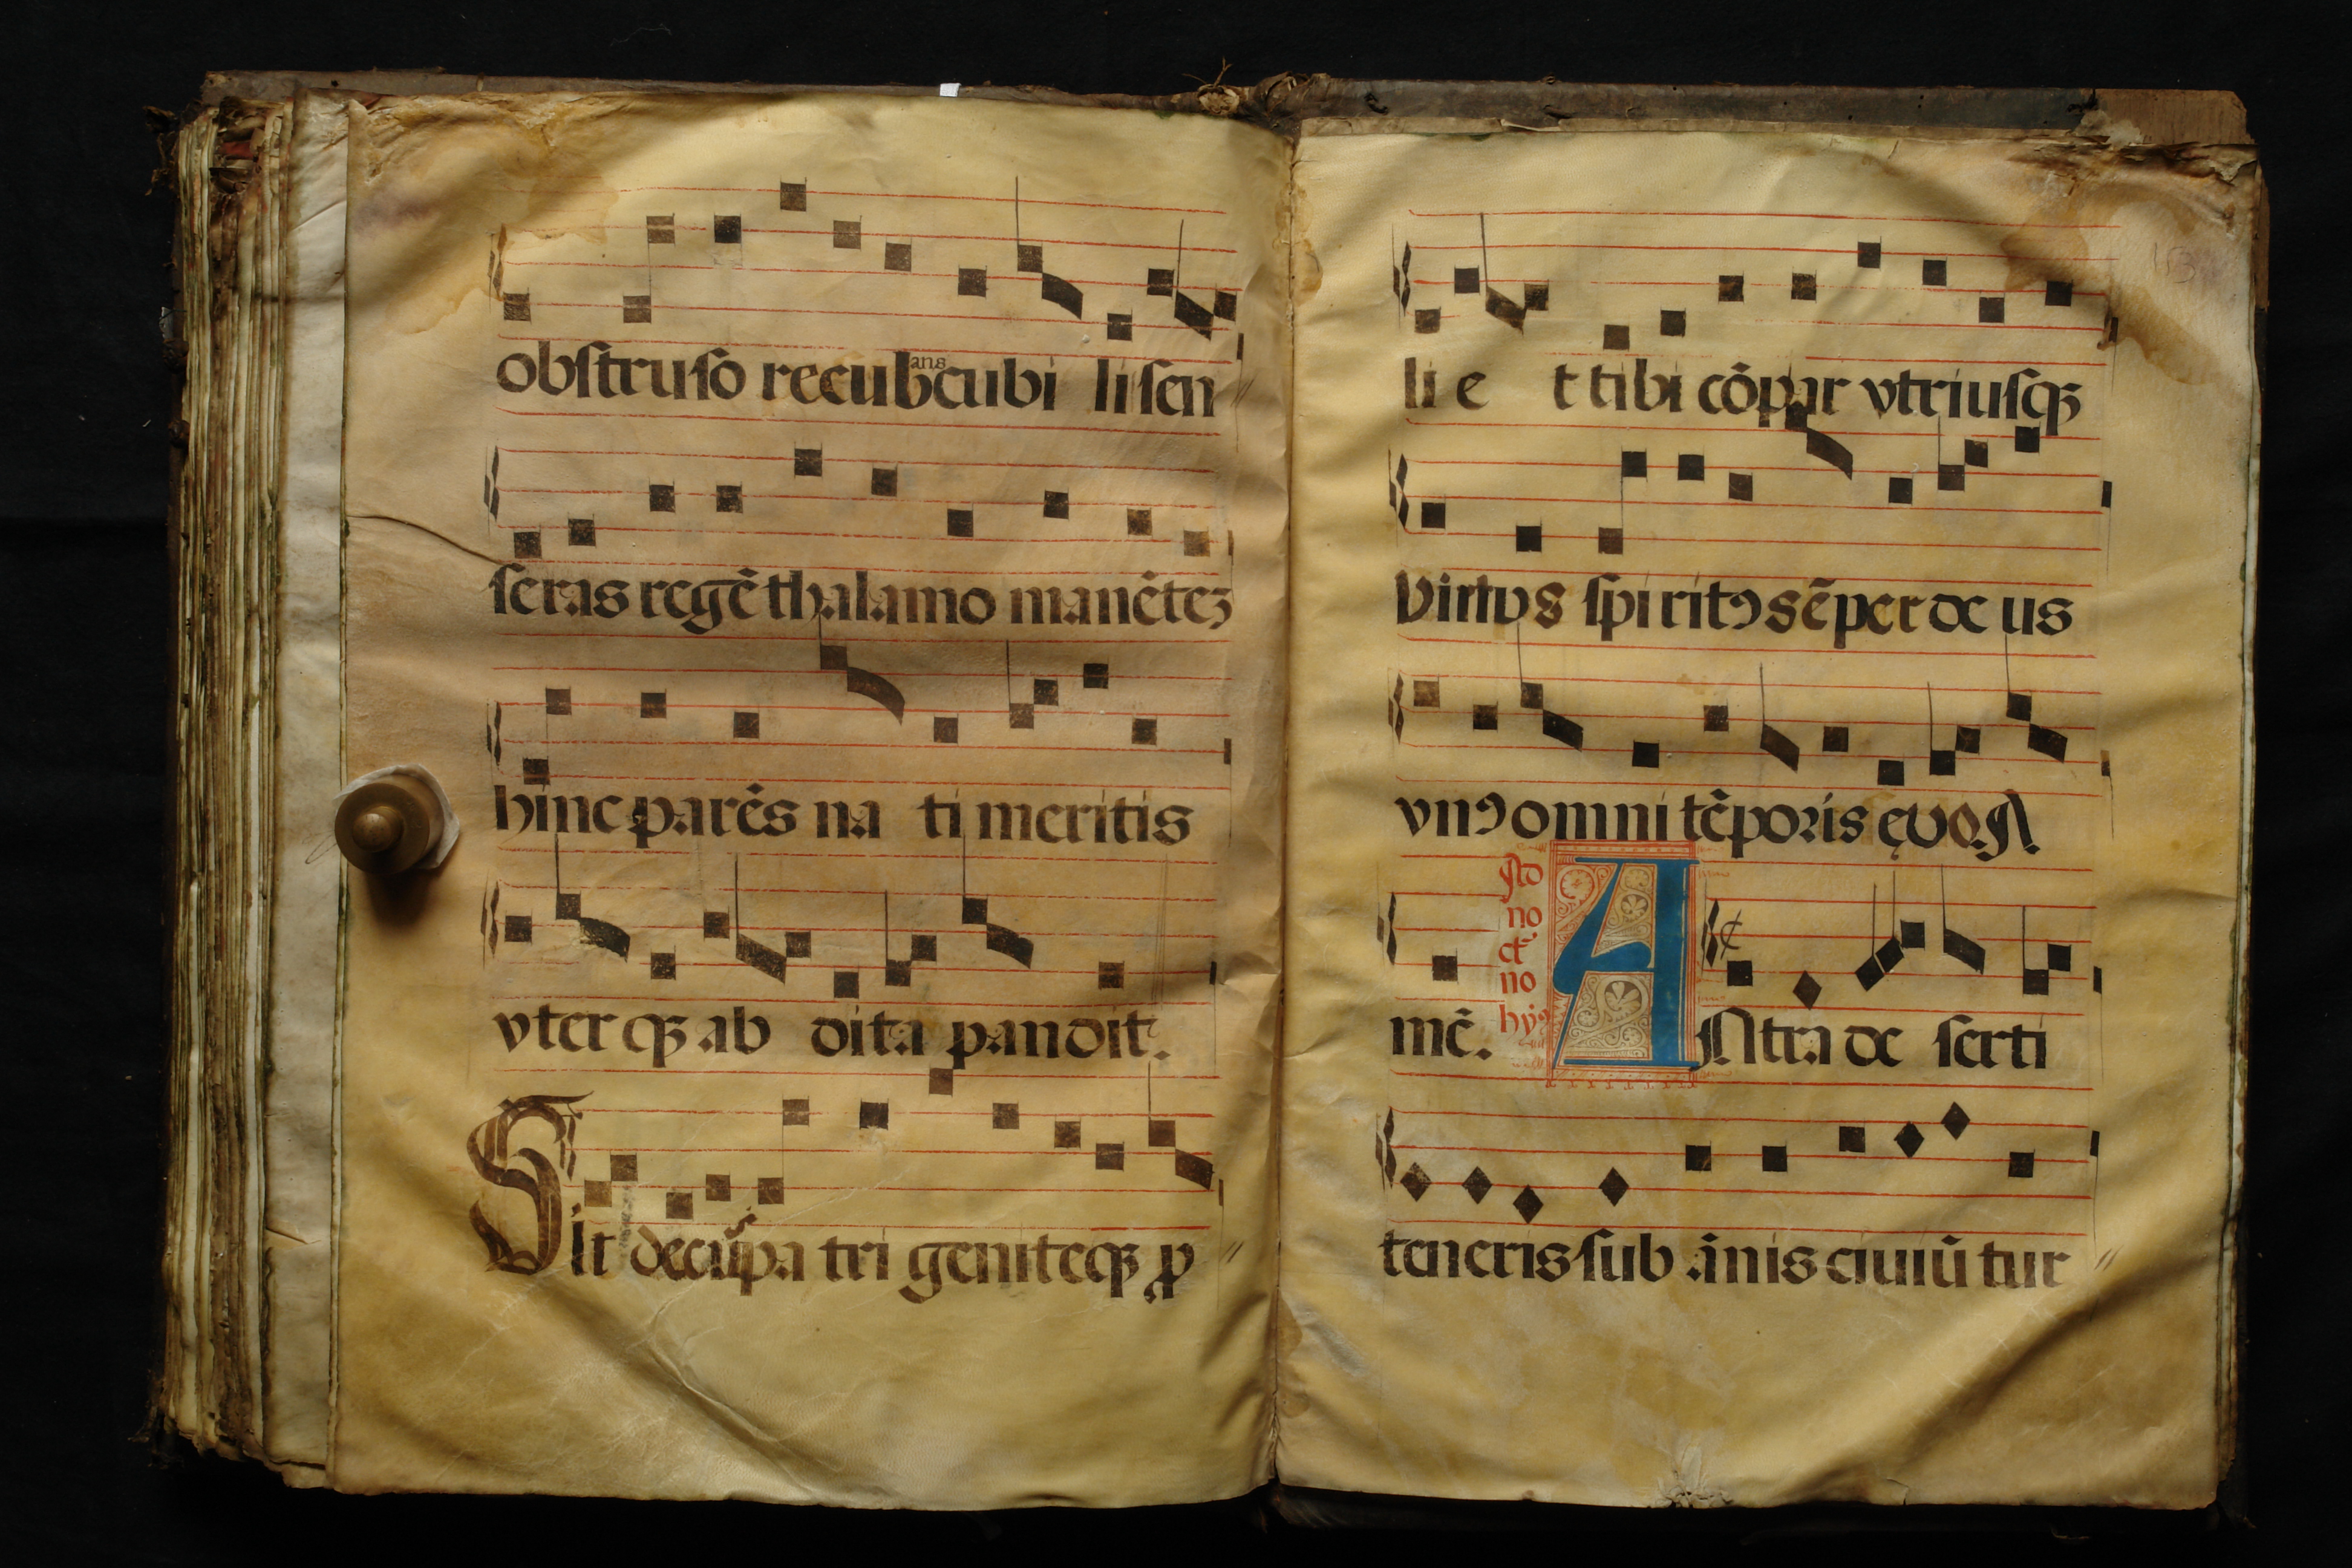 obſtruſo recubans cubi li ſen
ſeras regē thalamo manētez
hinc parēs na ti meritis
vterqꝫ ab dita pandit.
Sit decus pa tri geniteqꝫ ꝓ
li e t tibi cōpar vtriuſqꝫ
Virtvs ſpi ritꝰ sēper de us
vnꝰ omni tēporis ęvo. A
mē.
Ad
no
ct
no
hyꝰ
ANtra de ſerti
teneris ſub ānis ciuiū tur